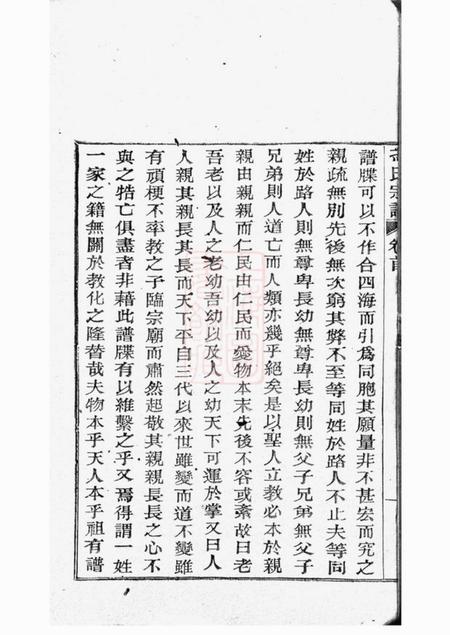 氏宗譜 卷首
譜牒可以不作合四海而引為同胞其願量非不甚宏而究之
親疏無別先後無次窮其弊不至等同姓於路人不止夫等同
姓於路人則無尊卑長幼無尊卑長幼則無父子兄弟無父子
兄弟則人道亡而人類亦幾乎絕矣是以聖人立教必本於親
親由親親而仁民由仁民而愛物本末先後不容或紊故曰老
吾老以及人之老幼吾幼以及人之幼天下可運於掌又曰人
人親其親長其長而天下平自三代以來世雖變而道不變雖
有頑梗不率教之子臨宗廟而肅然起敬其親親長長之心不
與之牿亡俱盡者非藉此譜牒有以維繫之乎又焉得謂一姓
一家之籍無關於教化之隆替哉夫物本乎天人本乎祖有譜